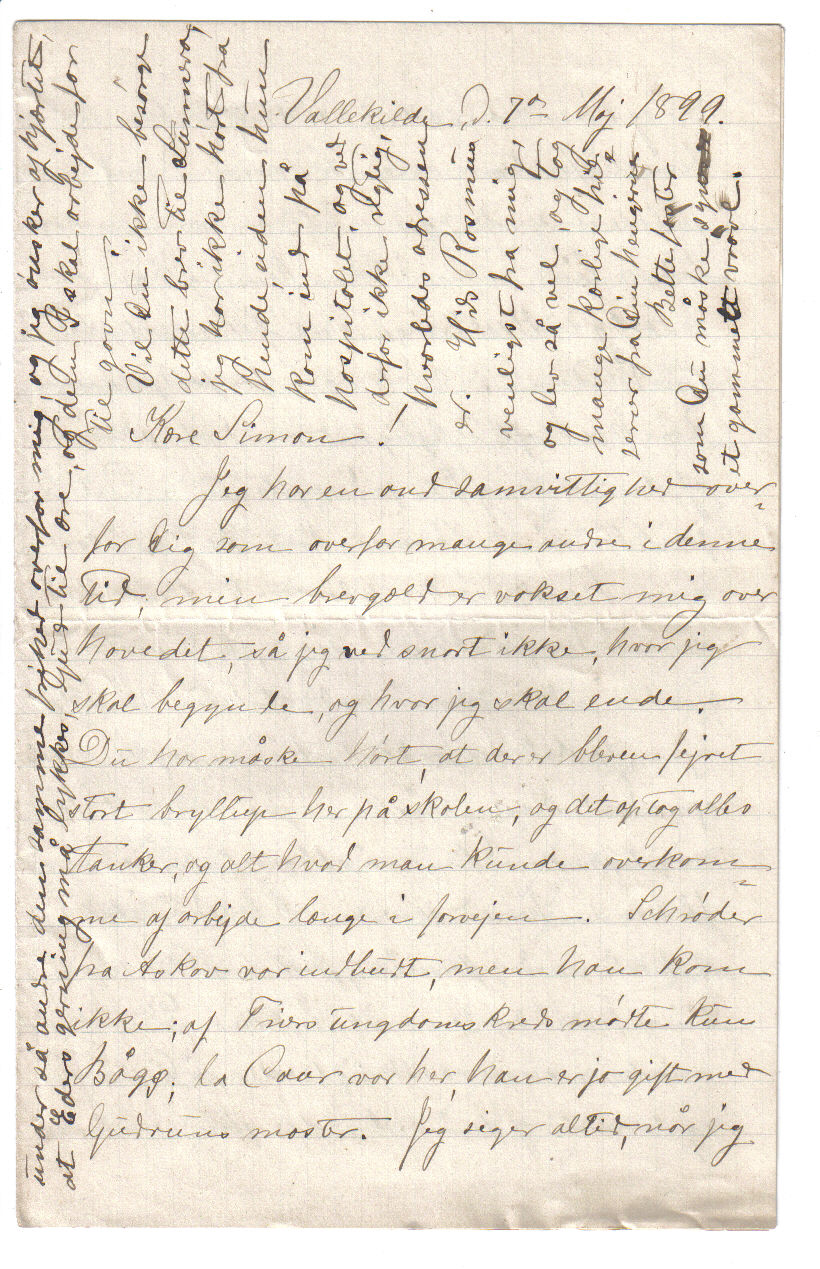 Vallekilde, d. 7de Maj 1899.
Kære Simon!
Jeg har en ond samvittighed over-
for Dig som overfor mange andre i denne
Tid, min brevgæld er vokset mig over
hovedet, så jeg ved snart ikke, hvor jeg
skal begynde, og hvor jeg skal ende.
Du har måske hørt, at der er bleven fejret
stort bryllup her på skolen, og det optog alles
tanker, og alt hvad man kunde overkom-
me af arbejde længe i forvejen. Schrøder
fra Askov var indbudt, men han kom
ikke; af Triers ungdomskreds mødte kun
Bågø; la Cour var her, han er jo gift med
Gudruns moster. Jeg siger altid, når jeg
under så andre den samme frihed overfor mig, og jeg ønsker af hjærtet,
at Eders gerning må lykkes, Gud til ære, og dem I skal arbejde for
til gavn.
Vil Du ikke besørge
dette brev til
jeg har ikke hørt fra
hende, uden hun
kom ind på
hospitalet, og ved
derfor ikke rigtig,
hvorledes adressen
er. Hils Rasmus
venligst fra mig,
og lev så vel, og tag
mange kærlige hil-
sener fra Din hengivne
Bettefaster
som Du måske synes
et gammelt vrøvl.